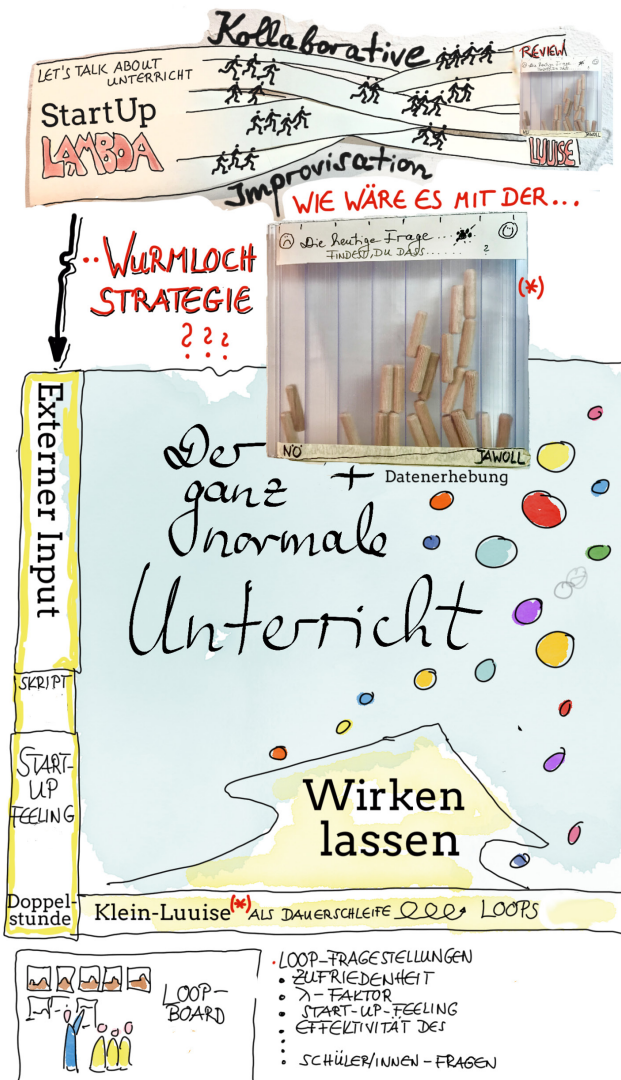 Kollaborative
LET'S TALK ABOUT
UNTERRICHT
StartUp
LAMBDA
REVIEW
Die heutige Frage
JAWOLL
LUUISE
Improvisation
WIE WÄRE ES MIT DER...
..WURMLOCH
STRATEGIE
???
Die heutige Frage...
FINDEST DU DASS...... ?
(*)
NÖ
JAWOLL
Datenerhebung
Externer Input
Der
ganz +
normale
Unterricht
SKRIPT
START-
UP
FEELING
Wirken
lassen
Doppel-
stunde
Klein-Luuise(*) ALS DAUERSCHLEIFE LOOPS
LOOP-
BOARD
.LOOP-FRAGESTELLUNGEN
• ZUFRIEDENHEIT
• λ-FAKTOR
• START-UP-FEELING
• EFFEKTIVITÄT DES
•
•
• SCHÜLER/INNEN-FRAGEN